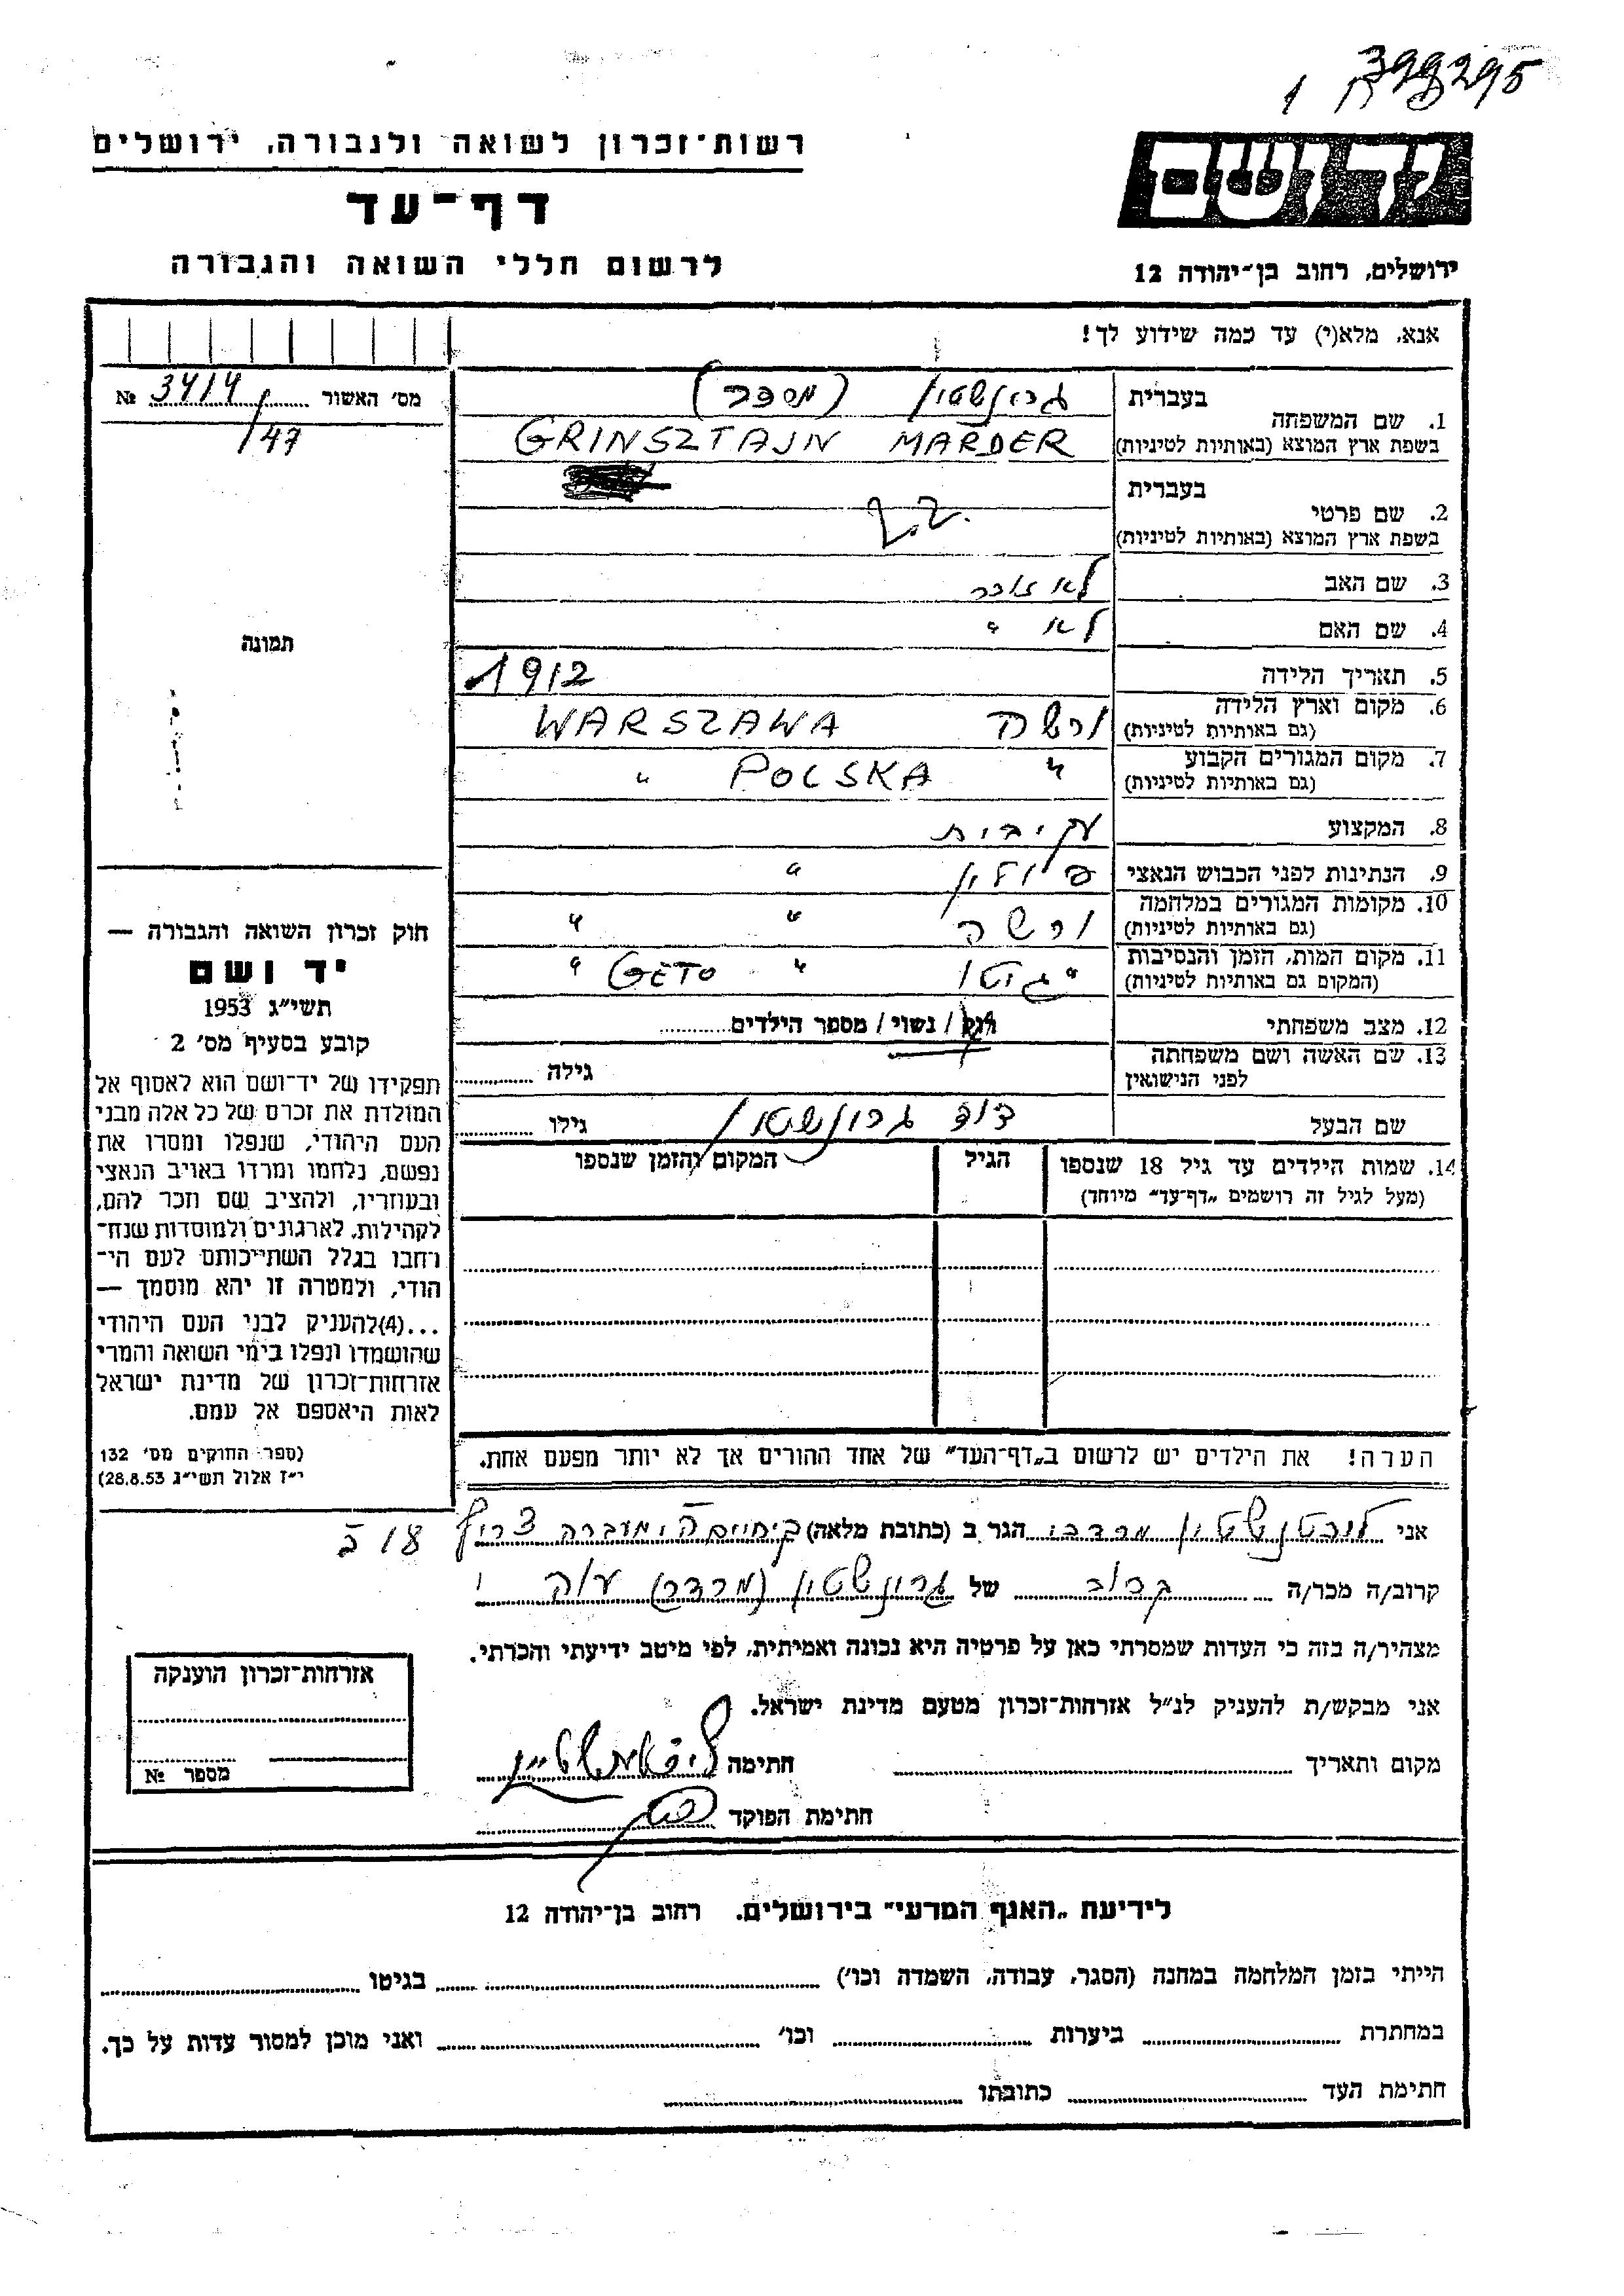 398295
רשות־זכרון לשואה ולגבורה, ירושלים
דף־עד
לרשום חללי השואה והגבורה
יד ושם
ירושלים, רחוב בן־יהודה 12
אנא, מלא(י) עד כמה שידוע לך!
מס׳ האשור 3414 №
/47
1. שם המשפחה בעברית גרינשטין
בשפת ארץ המוצא (באותיות לטיניות) GRINSZTAJN MARDER
2. שם פרטי בעברית
בשפת ארץ המוצא (באותיות לטיניות)
3. שם האב לא זוכר
4. שם האם לא "
תמונה
5. תאריך הלידה 1912
6. מקום וארץ הלידה ורשה WARSZAWA
(גם באותיות לטיניות)
7. מקום המגורים הקבוע " POLSKA "
(גם באותיות לטיניות)
8. המקצוע
9. הנתינות לפני הכבוש הנאצי פולין "
10. מקומות המגורים במלחמה ורשה " "
(גם באותיות לטיניות)
11. מקום המות, הזמן והנסיבות גיטו " GETO "
(המקום גם באותיות לטיניות)
12. מצב משפחתי רוק / נשוי / מספר הילדים
13. שם האשה ושם משפחתה
לפני הנישואין גילה
שם הבעל דוד גרינשטין גילו
14. שמות הילדים עד גיל 18 שנספו הגיל המקום והזמן שנספו
(מעל לגיל זה רושמים „דף־עד״ מיוחד)
חוק זכרון השואה והגבורה —
יד ושם
תשי״ג 1953
קובע בסעיף מס׳ 2
תפקידו של יד־ושם הוא לאסוף אל
המולדת את זכרם של כל אלה מבני
העם היהודי, שנפלו ומסרו את
נפשם, נלחמו ומרדו באויב הנאצי
ובעוזריו, ולהציב שם וזכר להם,
לקהילות, לארגונים ולמוסדות שנח־
רבו בגלל השתייכותם לעם הי־
הודי, ולמטרה זו יהא מוסמך —
...(4)להעניק לבני העם היהודי
שהושמדו ונפלו בימי השואה והמרי
אזרחות־זכרון של מדינת ישראל
לאות היאספם אל עמם.
(ספר החוקים מס׳ 132
י״ז אלול תשי״ג 28.8.53)
הערה! את הילדים יש לרשום ב„דף־העד״ של אחד ההורים אך לא יותר מפעם אחת.
אני מרדכי הגר ב (כתובת מלאה) מעברה צריף 18
קרוב/ה מכר/ה קרוב של גרינשטין (מרדר)
מצהיר/ה בזה כי העדות שמסרתי כאן על פרטיה היא נכונה ואמיתית, לפי מיטב ידיעתי והכרתי.
אני מבקש/ת להעניק לנ״ל אזרחות־זכרון מטעם מדינת ישראל.
מקום ותאריך חתימה
חתימת הפוקד
אזרחות־זכרון הוענקה
מספר №
לידיעת „האגף המדעי״ בירושלים. רחוב בן־יהודה 12
הייתי בזמן המלחמה במחנה (הסגר, עבודה, השמדה וכו׳) בגיטו
במחתרת ביערות וכו׳ ואני מוכן למסור עדות על כך.
חתימת העד כתובתו